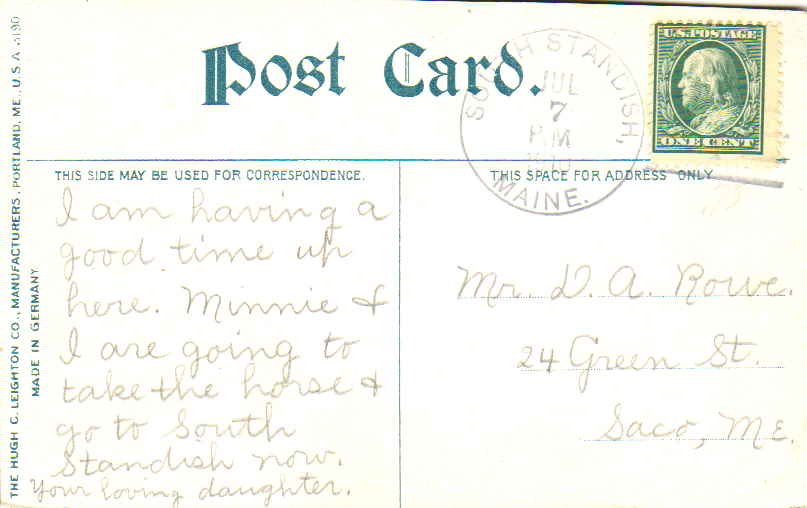 Post Card.
SOUTH STANDISH,
JUL
7
P.M
1910
MAINE.
U.S. POSTAGE
ONE CENT
THIS SIDE MAY BE USED FOR CORRESPONDENCE.
THIS SPACE FOR ADDRESS ONLY
I am having a
good time up
here. Minnie &
I are going to
take the horse &
go to South
Standish now.
Your loving daughter.
Mr. D. A. Rowe.
24 Green St.
Saco, Me.
THE HUGH C. LEIGHTON CO., MANUFACTURERS, PORTLAND, ME., U.S.A
MADE IN GERMANY